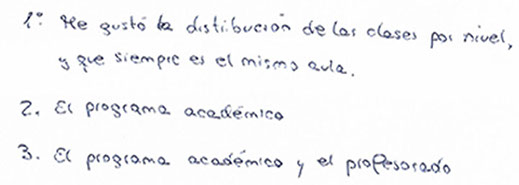 1º. Me gustó la distribución de las clases por nivel,
y que siempre es el mismo aula.
2. El programa académico
3. El programa académico y el profesorado